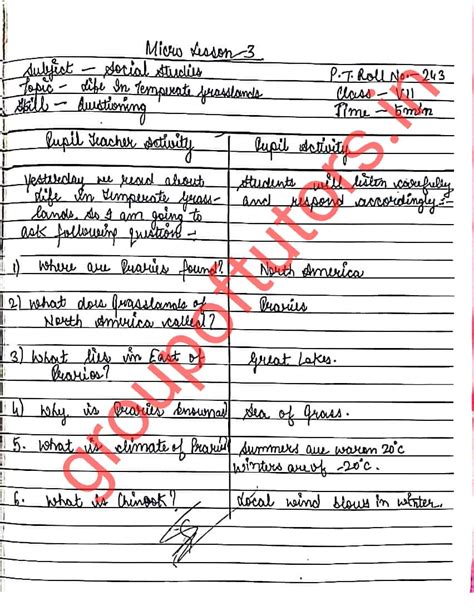 Micro Lesson-3
Subject - Social Studies P.T. Roll No - 243
Topic - Life In Temperate Grasslands Class - VII
Skill - Questioning Time - 5 min
Pupil Teacher Activity Pupil Activity
Yesterday we read about Students will listen carefully
Life In Temperate Grass- and respond accordingly:-
lands. So I am going to
ask following question -
1) Where are Praries found? North America
2) What does Grasslands of Praries
North America called?
3) What lies in East of Great Lakes.
Praries?
4) Why is Praries knownas Sea of Grass.
5. What is climate of Praries Summers are warm 20°c
Winters are of -20°c.
6. What is Chinook? Local wind blows in winter.
groupoftutors.in